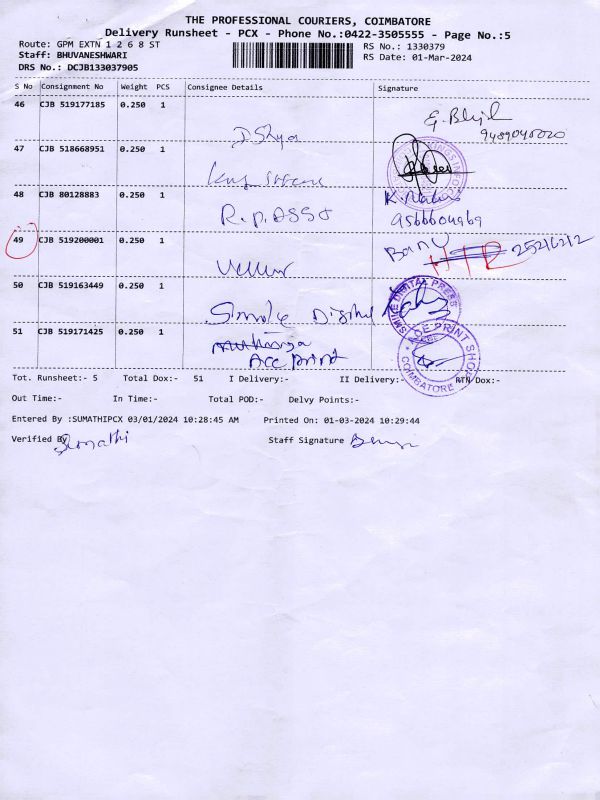 THE PROFESSIONAL COURIERS, COIMBATORE
Delivery Runsheet - PCX - Phone No.:0422-3505555 - Page No.:5
Route: GPM EXTN 1 2 6 8 ST RS No.: 1330379
Staff: BHUVANESHWARI RS Date: 01-Mar-2024
DRS No.: DCJB133037905
S No Consignment No Weight PCS Consignee Details Signature
46 CJB 519177185 0.250 1
47 CJB 518668951 0.250 1
48 CJB 80128883 0.250 1
R.P. ASSO
9566604969
49 CJB 519200001 0.250 1
Banu
50 CJB 519163449 0.250 1
SMIKE DIGITAL PRESS
51 CJB 519171425 0.250 1
Ace print
PRINT SHOP
COIMBATORE
Tot. Runsheet:- 5 Total Dox:- 51 I Delivery:- II Delivery:- RTN Dox:-
Out Time:- In Time:- Total POD:- Delvy Points:-
Entered By :SUMATHIPCX 03/01/2024 10:28:45 AM Printed On: 01-03-2024 10:29:44
Verified By Sumathi Staff Signature